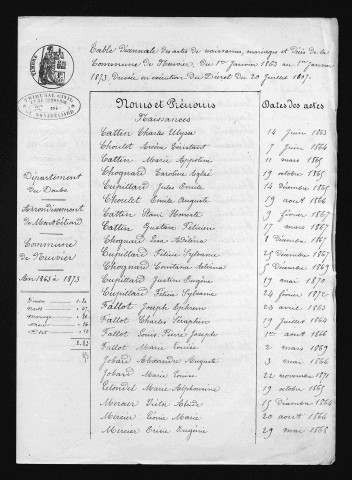 Table décennale des actes de naissances, mariages et décès de la
Commune de Feuvier, du 1er Janvier 1863 au 1er Janvier
1873, dressée en exécution du Décret du 20 Juillet 1807.
TIMBRE
TRIBUNAL CIVIL
DE MONTBÉLIARD
Département
du Doubs
Arrondissement
de Montbéliard
Commune
de Feuvier
An 1863 à 1873
Noms et Prénoms
Dates des actes
Naissances
Cattin Charles Ulysse 14 Juin 1863
Choulet Irénée Constant 7 Juin 1864
Cattin Marie Appoline 11 mars 1865
Chognard Caroline Eglé 19 octobre 1865
Cupillard Jules Emile 14 décembre 1865
Choulet Emile Auguste 19 août 1866
Cattin Henri 9 février 1867
Cattin Gustave Félicien 17 mars 1867
Chognard Héléna 8 décembre 1867
Cupillard Félicie Sylvanie 25 décembre 1867
Chognard 5 décembre 1869
Cupillard Justin Eugène 19 mai 1870
Cupillard Félicie Sylvanie 24 février 1872
Fallot Joseph Ephrem 23 avril 1863
Fallot Charles Séraphin 19 juillet 1864
Fallot Louis Pierre Joseph 1er août 1866
Fallot Marie Louise 2 mars 1869
Jobard Alexandre Auguste 3 mai 1866
Jobard Marie Louise 22 novembre 1871
Marie Alphonsine 19 octobre 1865
Mercier 15 décembre 1864
Mercier Léonie Marie 20 août 1866
Mercier Eugénie 29 mai 1865